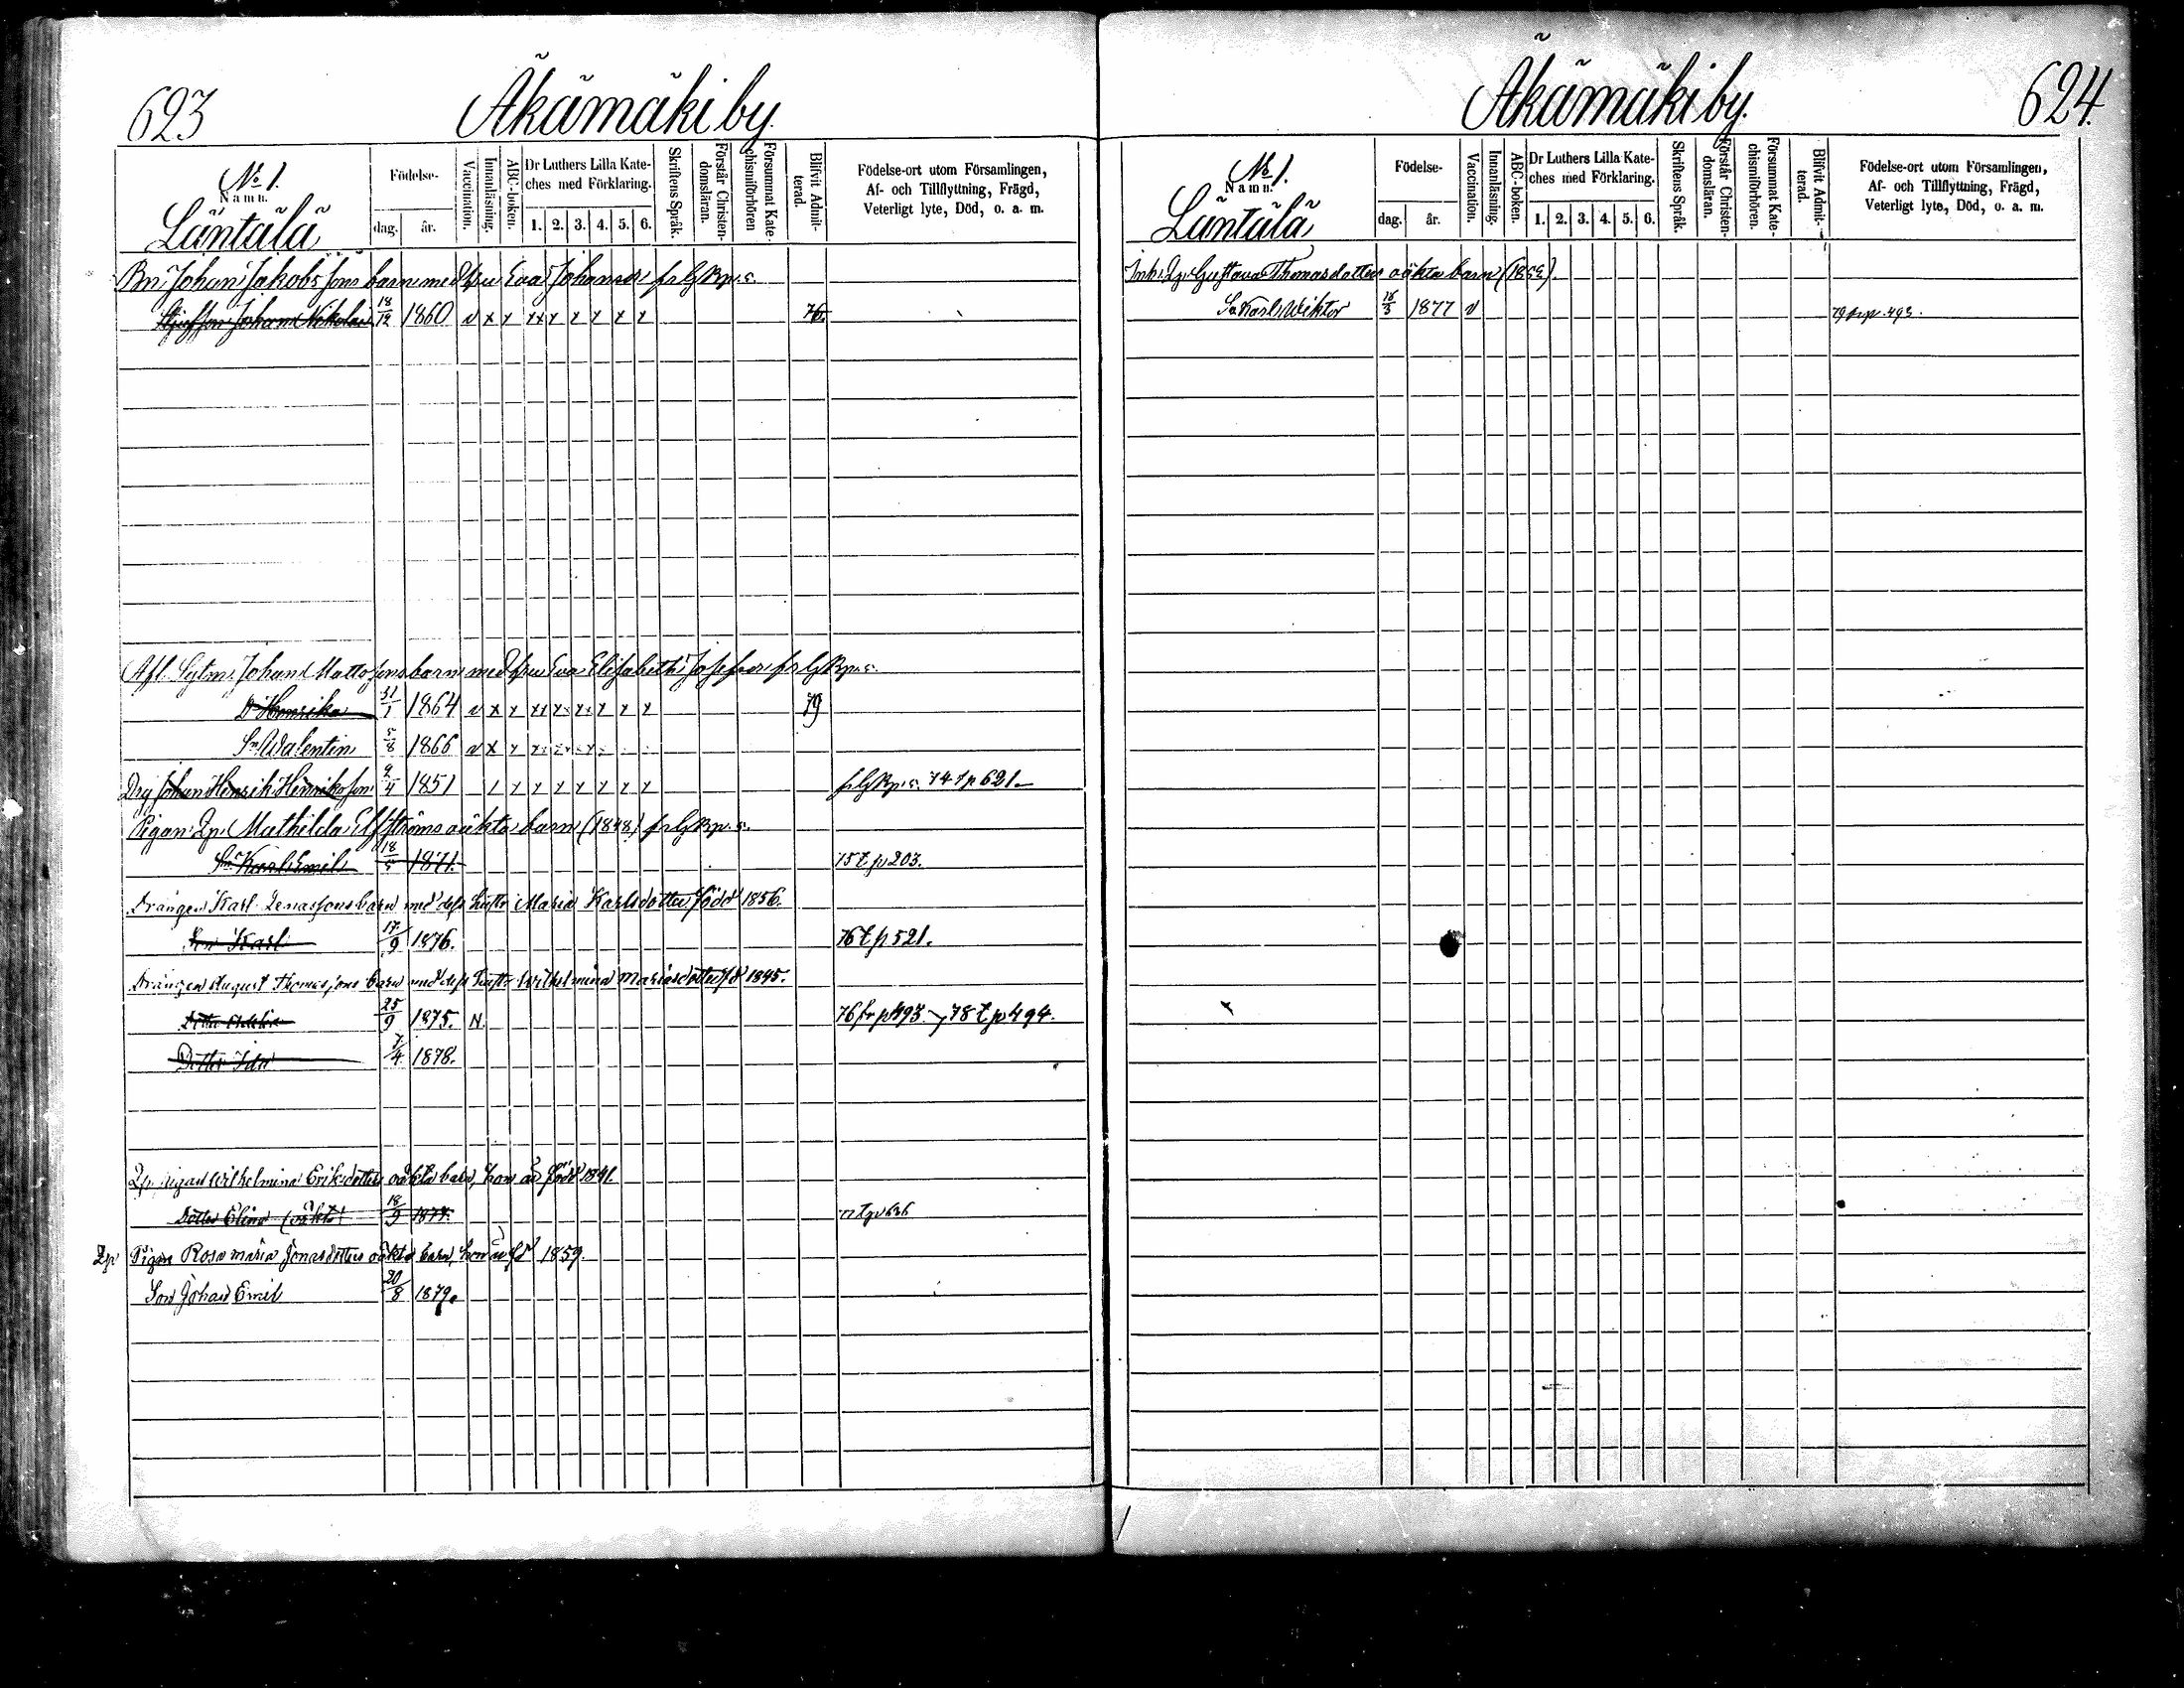 623
Äkämäki by.
No 1.
Namn.
Läntälä
Födelse-
dag. år.
Vaccination.
Innanläsning.
ABC-boken.
Dr Luthers Lilla Kate-
ches med Förklaring.
1. 2. 3. 4. 5. 6.
Skriftens Språk.
Förstår Christen-
domsläran.
Försummat Kate-
chismiförhören
Blifvit Admit-
terad.
Födelse-ort utom Församlingen,
Af- och Tillflyttning, Frägd,
Veterligt lyte, Död, o. a. m.
Bn Johan Jakobs sons barn med hru Eva Johansdr
Styfson Johann Nikolai 18/12 1860 v x x xx x x x x x 76.
Afl. Johan Mattssons barn med hru Eva Elisabeth Josefsdr
Dr Henrika 31/1 1864 v x x xx xx xx x x x 79
Sn Walentin 5/8 1866 v x x
Drg Johan Henrik Henriksson 9/4 1851 x x x x x x x x 74 t p 621
Pigan Lp. Mathilda Elfströms oäkta barn (1848)
Sn Karl Emil 18/5 1871. 75 t. p 203.
Drängen Karl Lenassons barn med dess hustr Maria Karlsdotter född 1856.
Son Karl 17/9 1876. 76 t p 521.
Drängen August Thomassons barn med dess hustr Wilhelmina Mariasdotter fd 1845.
25/9 1875. 76 fr p 493 78 t p 494.
Dotter Ida 7/4 1878.
Lp. pigan Wilhelmina Eriksdotters oäkta barn, hon är född 1841.
Dotter Elina (oäkta) 18/9 1877. 77 t p 636
Lp Pigan Rosa maria Jonasdotters oäkta barn, hon är fd 1859.
Son Johan Emil 20/8 1879.
624.
Äkämäki by.
No 1.
Namn.
Läntälä
Födelse-
dag. år.
Vaccination.
Innanläsning.
ABC-boken.
Dr Luthers Lilla Kate-
ches med Förklaring.
1. 2. 3. 4. 5. 6.
Skriftens Språk.
Förstår Christen-
domsläran.
Försummat Kate-
chismiförhören.
Blifvit Admit-
terad.
Födelse-ort utom Församlingen,
Af- och Tillflyttning, Frägd,
Veterligt lyte, Död, o. a. m.
Inh. Lp. Gustava Thomasdotters oäkta barn
Sn Karl Wiktor 1877 v 79 fr p. 493.